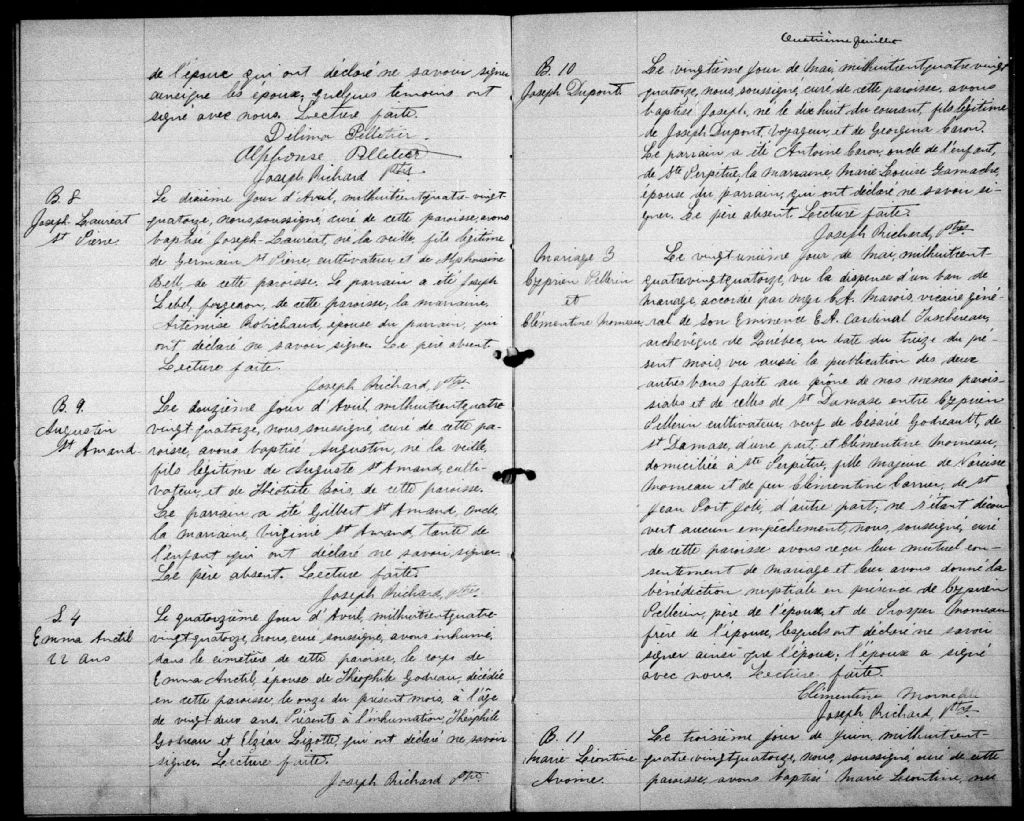 de l'époux qui ont déclaré ne savoir signer
ainsique les époux, quelques temoins ont
signé avec nous. Lecture faite.
Délima Pelletier
Alphonse Pelletier
Joseph Richard Ptre
B. 8
Joseph Lauréat
St Pierre
Le dixième jour d'Avril, milhuitcentquatre-vingt
quatorze, nous, soussigné, curé de cette paroisse, avons
baptisé Joseph-Lauréat, né la veille, fils légitime
de Germain St Pierre, cultivateur et de Alphonsine
Bell, de cette paroisse. Le parrain a été Joseph
Lebel, forgeron, de cette paroisse, la marraine,
Artémise Robichaud, épouse du parrain, qui
ont déclaré ne savoir signer. Le père absent.
Lecture faite.
Joseph Richard, Ptre
B. 9.
Augustin
St Amand
Le douzième jour d'Avril milhuitcentquatre
vingt quatorze, nous, soussigné, curé de cette pa-
roisse, avons baptisé Augustin, né la veille,
fils légitime de Auguste St Amand, culti-
vateur, et de Théotiste Bois, de cette paroisse.
Le parrain a été Gilbert St Amand, oncle
la marraine, Virginie St Amand, tante de
l'enfant qui ont déclaré ne savoir signer.
Le père absent. Lecture faite.
Joseph Richard, Ptre
S 4
Emma Anctil
22 ans
Le quatorzième jour d'Avril, milhuitcentquatre-
vingtquatorze, nous, curé, soussigné, avons inhumé,
dans le cimetière de cette paroisse, le corps de
Emma Anctil, épouse de Théophile Godreau, décédée
en cette paroisse, le onze du présent mois, à l'âge
de vingt deux ans. Présents à l'inhumation, Théophile
Godreau et Elzéar Lizotte, qui ont déclaré ne savoir
signer. Lecture faite.
Joseph Richard Ptre
Quatrième feuillet
B. 10
Joseph Dupont
Le vingtième jour de Mai, milhuitcentquatrevingt
quatorze, nous, soussigné, curé de cette paroisse, avons
baptisé Joseph, né le dix huit du courant, fils légitime
de Joseph Dupont, voyageur, et de Georgina Caron.
Le parrain a été Antoine Caron, oncle de l'enfant,
de Ste Perpétue, la marraine, Marie Louise Gamache,
épouse du parrain, qui ont déclaré ne savoir si-
gner. Le père absent. Lecture faite.
Joseph Richard, Ptre
Mariage 3
Cyprien Pellerin
et
Clémentine Morneau
Le vingt unième jour de Mai, milhuitcent-
quatrevingtquatorze, vu la dispense d'un ban de
mariage, accordée par Mgr C. A. Marois, vicaire géné-
ral de Son Eminence E. A. Cardinal Taschereau,
archevêque de Québec, en date du treize du pré-
sent mois, vu aussi la publication des deux
autres bans faite au prône de nos messes parois-
siales et de celles de St Damase entre Cyprien
Pellerin cultivateur, veuf de Césarie Godreault, de
St Damase, d'une part, et Clémentine Morneau,
domiciliée à Ste Perpétue, fille majeure de Narcisse
Morneau et de feu Clémentine Carrier, de St
Jean Port Joli, d'autre part; ne s'étant décou-
vert aucun empêchement, nous, soussigné, curé
de cette paroisse avons reçu leur mutuel con-
sentement de mariage et leur avons donné la
bénédiction nuptiale en présence de Cyprien
Pellerin, père de l'époux, et de Prosper Morneau
frère de l'épouse, lesquels ont déclaré ne savoir
signer ainsi que l'époux; l'épouse a signé
avec nous. Lecture faite.
Clémentine Morneau
Joseph Richard, Ptre
B. 11
Marie Léontine
Le troisième jour de Juin, milhuitcent-
quatre-vingtquatorze, nous, soussigné, curé de cette
paroisse, avons baptisé Marie Léontine, née